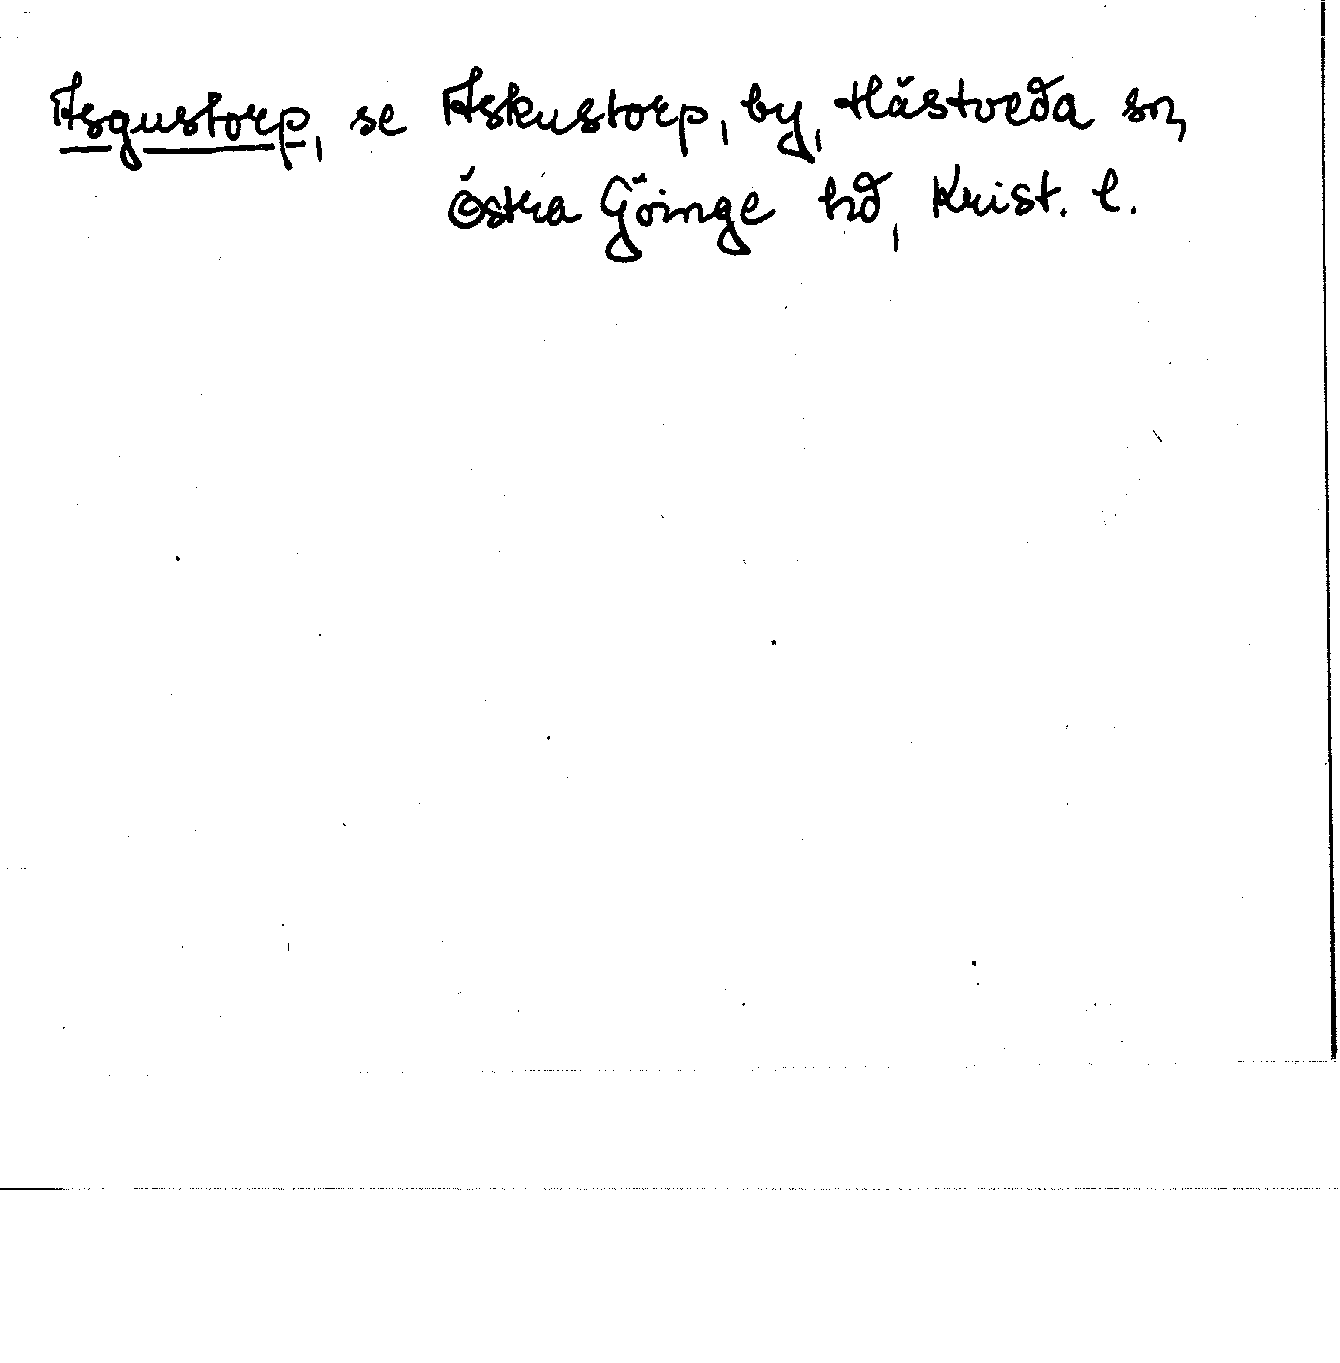 Asgustorp, se Askustorp, by, Hästveda sn,
Östra Göinge hd, Krist. l.